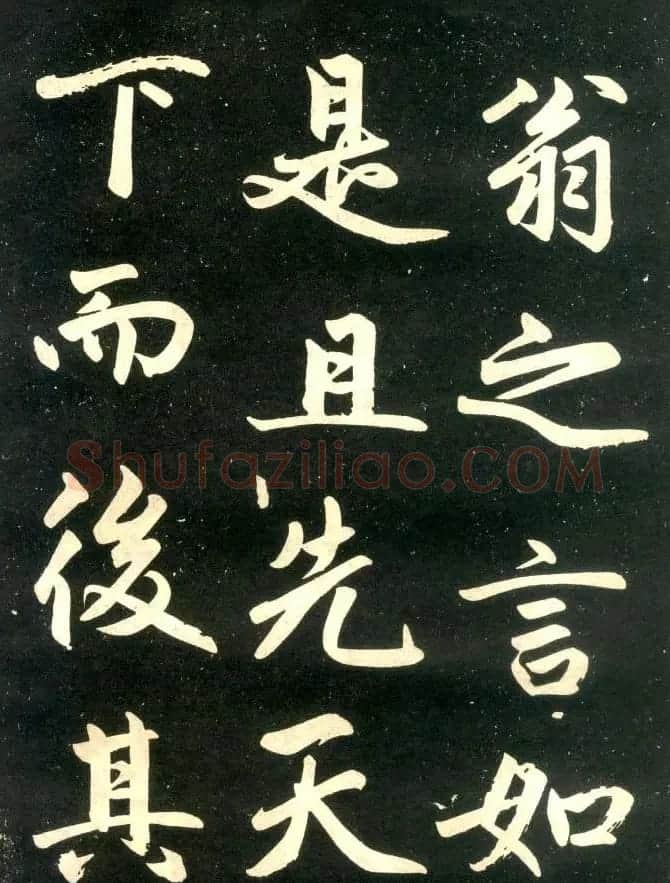 翁之言如
是且先天
下而後其
Shufaziliao.COM